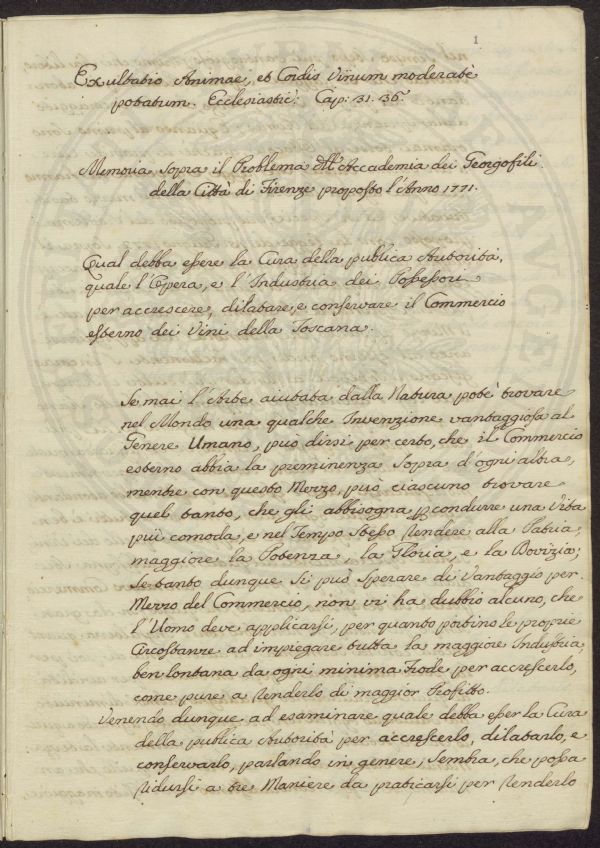 1
Exultatio Animae, et Cordis Vinum moderatè
potatum. Ecclesiastic: Cap: 31. 36.
Memoria sopra il Problema dell'Accademia dei Georgofili
della Città di Firenze proposto l'Anno 1771.
Qual debba essere la Cura della publica Autorità,
quale l'Opera, e l'Industria dei Possessori
per accrescere, dilatare, e conservare il Commercio
esterno dei Vini della Toscana.
Se mai l'Arte aiutata dalla Natura potè trovare
nel Mondo una qualche Invenzione vantaggiosa al
Genere Umano, può dirsi per certo, che il Commercio
esterno abbia la preminenza sopra d'ogni altra,
mentre con questo Mezzo, può ciascuno trovare
quel tanto, che gli abbisogna p condurre una Vita
più comoda, e nel Tempo stesso rendere alla Patria
maggiore la Potenza, la Gloria, e la Dovizia;
Se tanto dunque si può sperare di Vantaggio per
Mezzo del Commercio, non vi ha dubbio alcuno, che
l'Uomo deve applicarsi, per quanto portino le proprie
Circostanze ad impiegare tutta la maggiore Industria,
ben lontana da ogni minima Frode per accrescerlo,
come pure a renderlo di maggior Profitto.
Venendo dunque ad esaminare quale debba esser la Cura
della publica Autorità per accrescerlo, dilatarlo, e
conservarlo, parlando in genere, sembra, che possa
ridursi a tre Maniere da praticarsi per renderlo